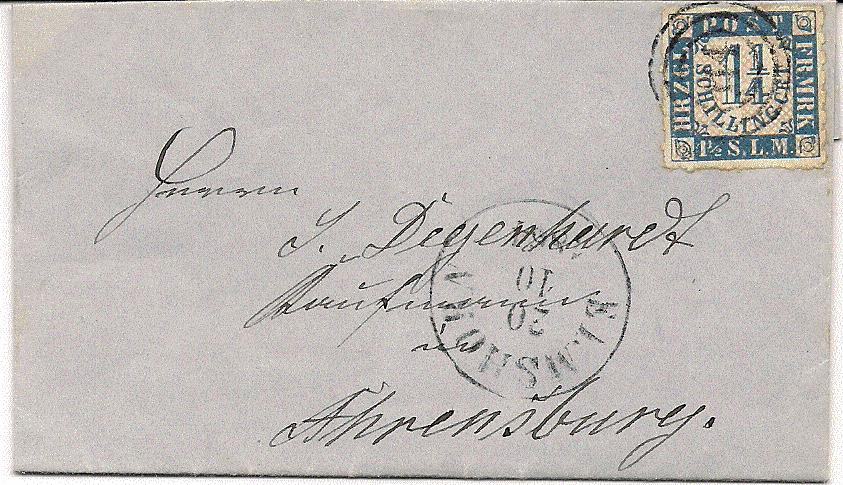 POST
HRZGL
FRMRK
1¼
SCHILLING CRT.
1⅓ S.L.M.
Herrn
J. Degenhardt
Kaufmann
in
Ahrensburg.
ELMSHORN
20
10